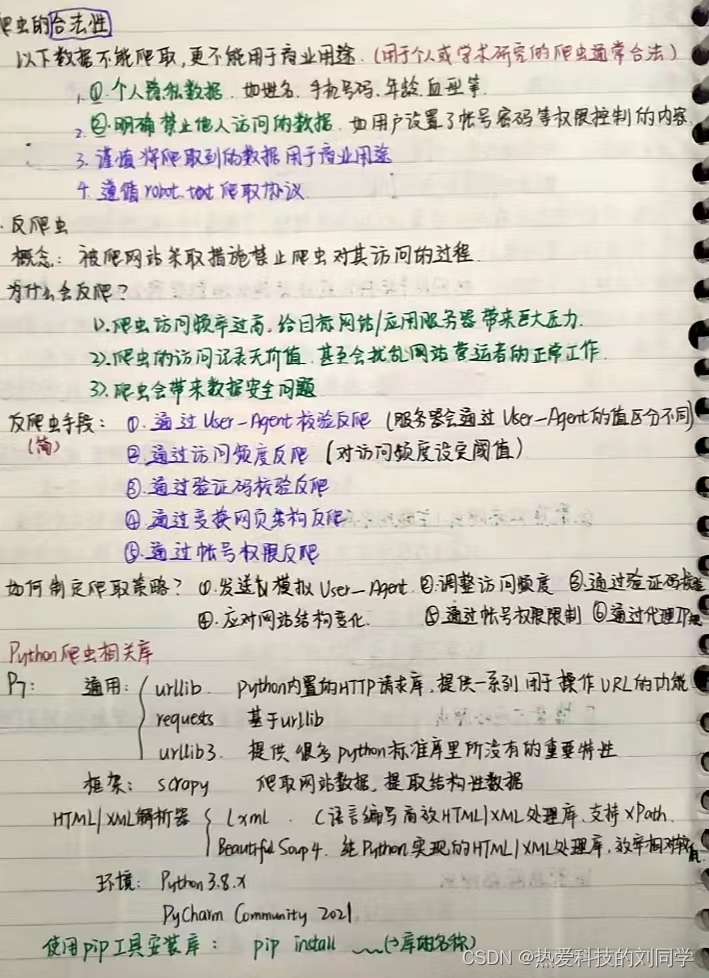 爬虫的合法性
以下数据不能爬取,更不能用于商业用途.(用于个人或学术研究的爬虫通常合法)
1.①.个人隐私数据.如姓名、手机号码、年龄、血型等.
2.②.明确禁止他人访问的数据.如用户设置了帐号密码等权限控制的内容.
3.谨慎将爬取到的数据用于商业用途
4.遵循robot.text爬取协议.
反爬虫
概念:被爬网站采取措施禁止爬虫对其访问的过程.
为什么会反爬?
1).爬虫访问频率过高,给目标网站/应用服务器带来巨大压力.
2).爬虫的访问记录无价值.甚至会扰乱网站营运者的正常工作.
3).爬虫会带来数据安全问题
反爬虫手段:①.通过User-Agent校验反爬(服务器会通过User-Agent的值区分不同)
(简) ②.通过访问频度反爬(对访问频度设定阈值)
③.通过验证码校验反爬
④.通过变换网页结构反爬
⑤.通过帐号权限反爬
如何制定爬取策略?①.发送模拟User-Agent.②.调整访问频度 ③.通过验证码校验
④.应对网站结构变化. ⑤.通过帐号权限限制 ⑥通过代理IP
Python爬虫相关库
Py: 通用:urllib. python内置的HTTP请求库,提供一系列用于操作URL的功能
requests 基于urllib
urllib3. 提供很多python标准库里所没有的重要特性
框架:scrapy 爬取网站数据,提取结构性数据
HTML/XML解析器 lxml. C语言编写高效HTML/XML处理库.支持XPath.
Beautiful Soup4. 纯Python实现的HTML/XML处理库,效率相对较
环境:Python3.8.x
PyCharm Community 2021
使用pip工具安装库: pip install (→库的名称)
CSDN @热爱科技的刘同学